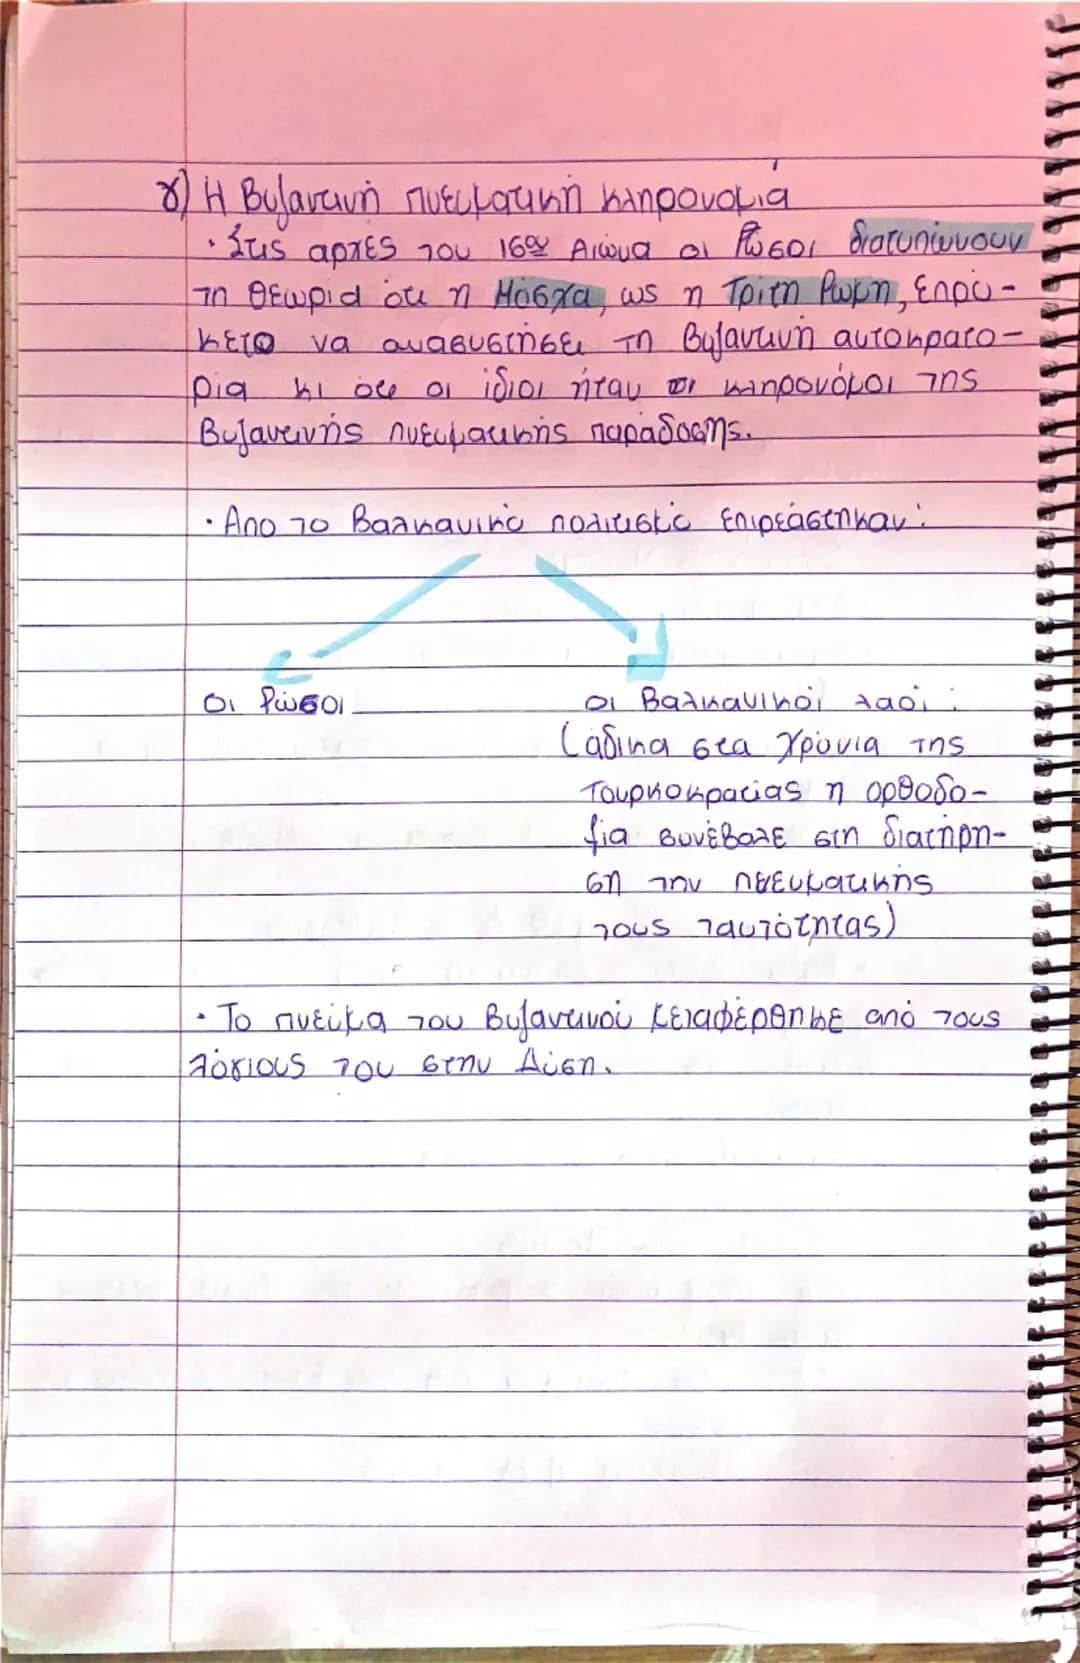 γ) Η Βυζαντινή πνευματική κληρονομιά
· Στις αρχές του 16ου Αιώνα οι Ρώσοι διατυπώνουν
τη θεωρία ότι η Μόσχα, ως η Τρίτη Ρώμη, επρό-
κειτο να αναβυστήσει τη Βυζαντινή αυτοκρατο-
ρία κι ότι οι ίδιοι ήταν οι κληρονόμοι της
Βυζαντινής πνευματικής παράδοσης.
· Απο το Βαλκανικό πολιτισμό επιρεάστηκαν:
οι Ρώσοι
οι Βαλκανικοί λαοί :
(άδικα στα χρόνια της
Τουρκοκρατίας η ορθοδο-
ξία συνέβαλε στη διατήρη-
ση την πνευματικής
τους ταυτότητας)
· Το πνεύμα του Βυζαντινού μεταφέρθηκε από τους
λόγιους του στην Δύση.